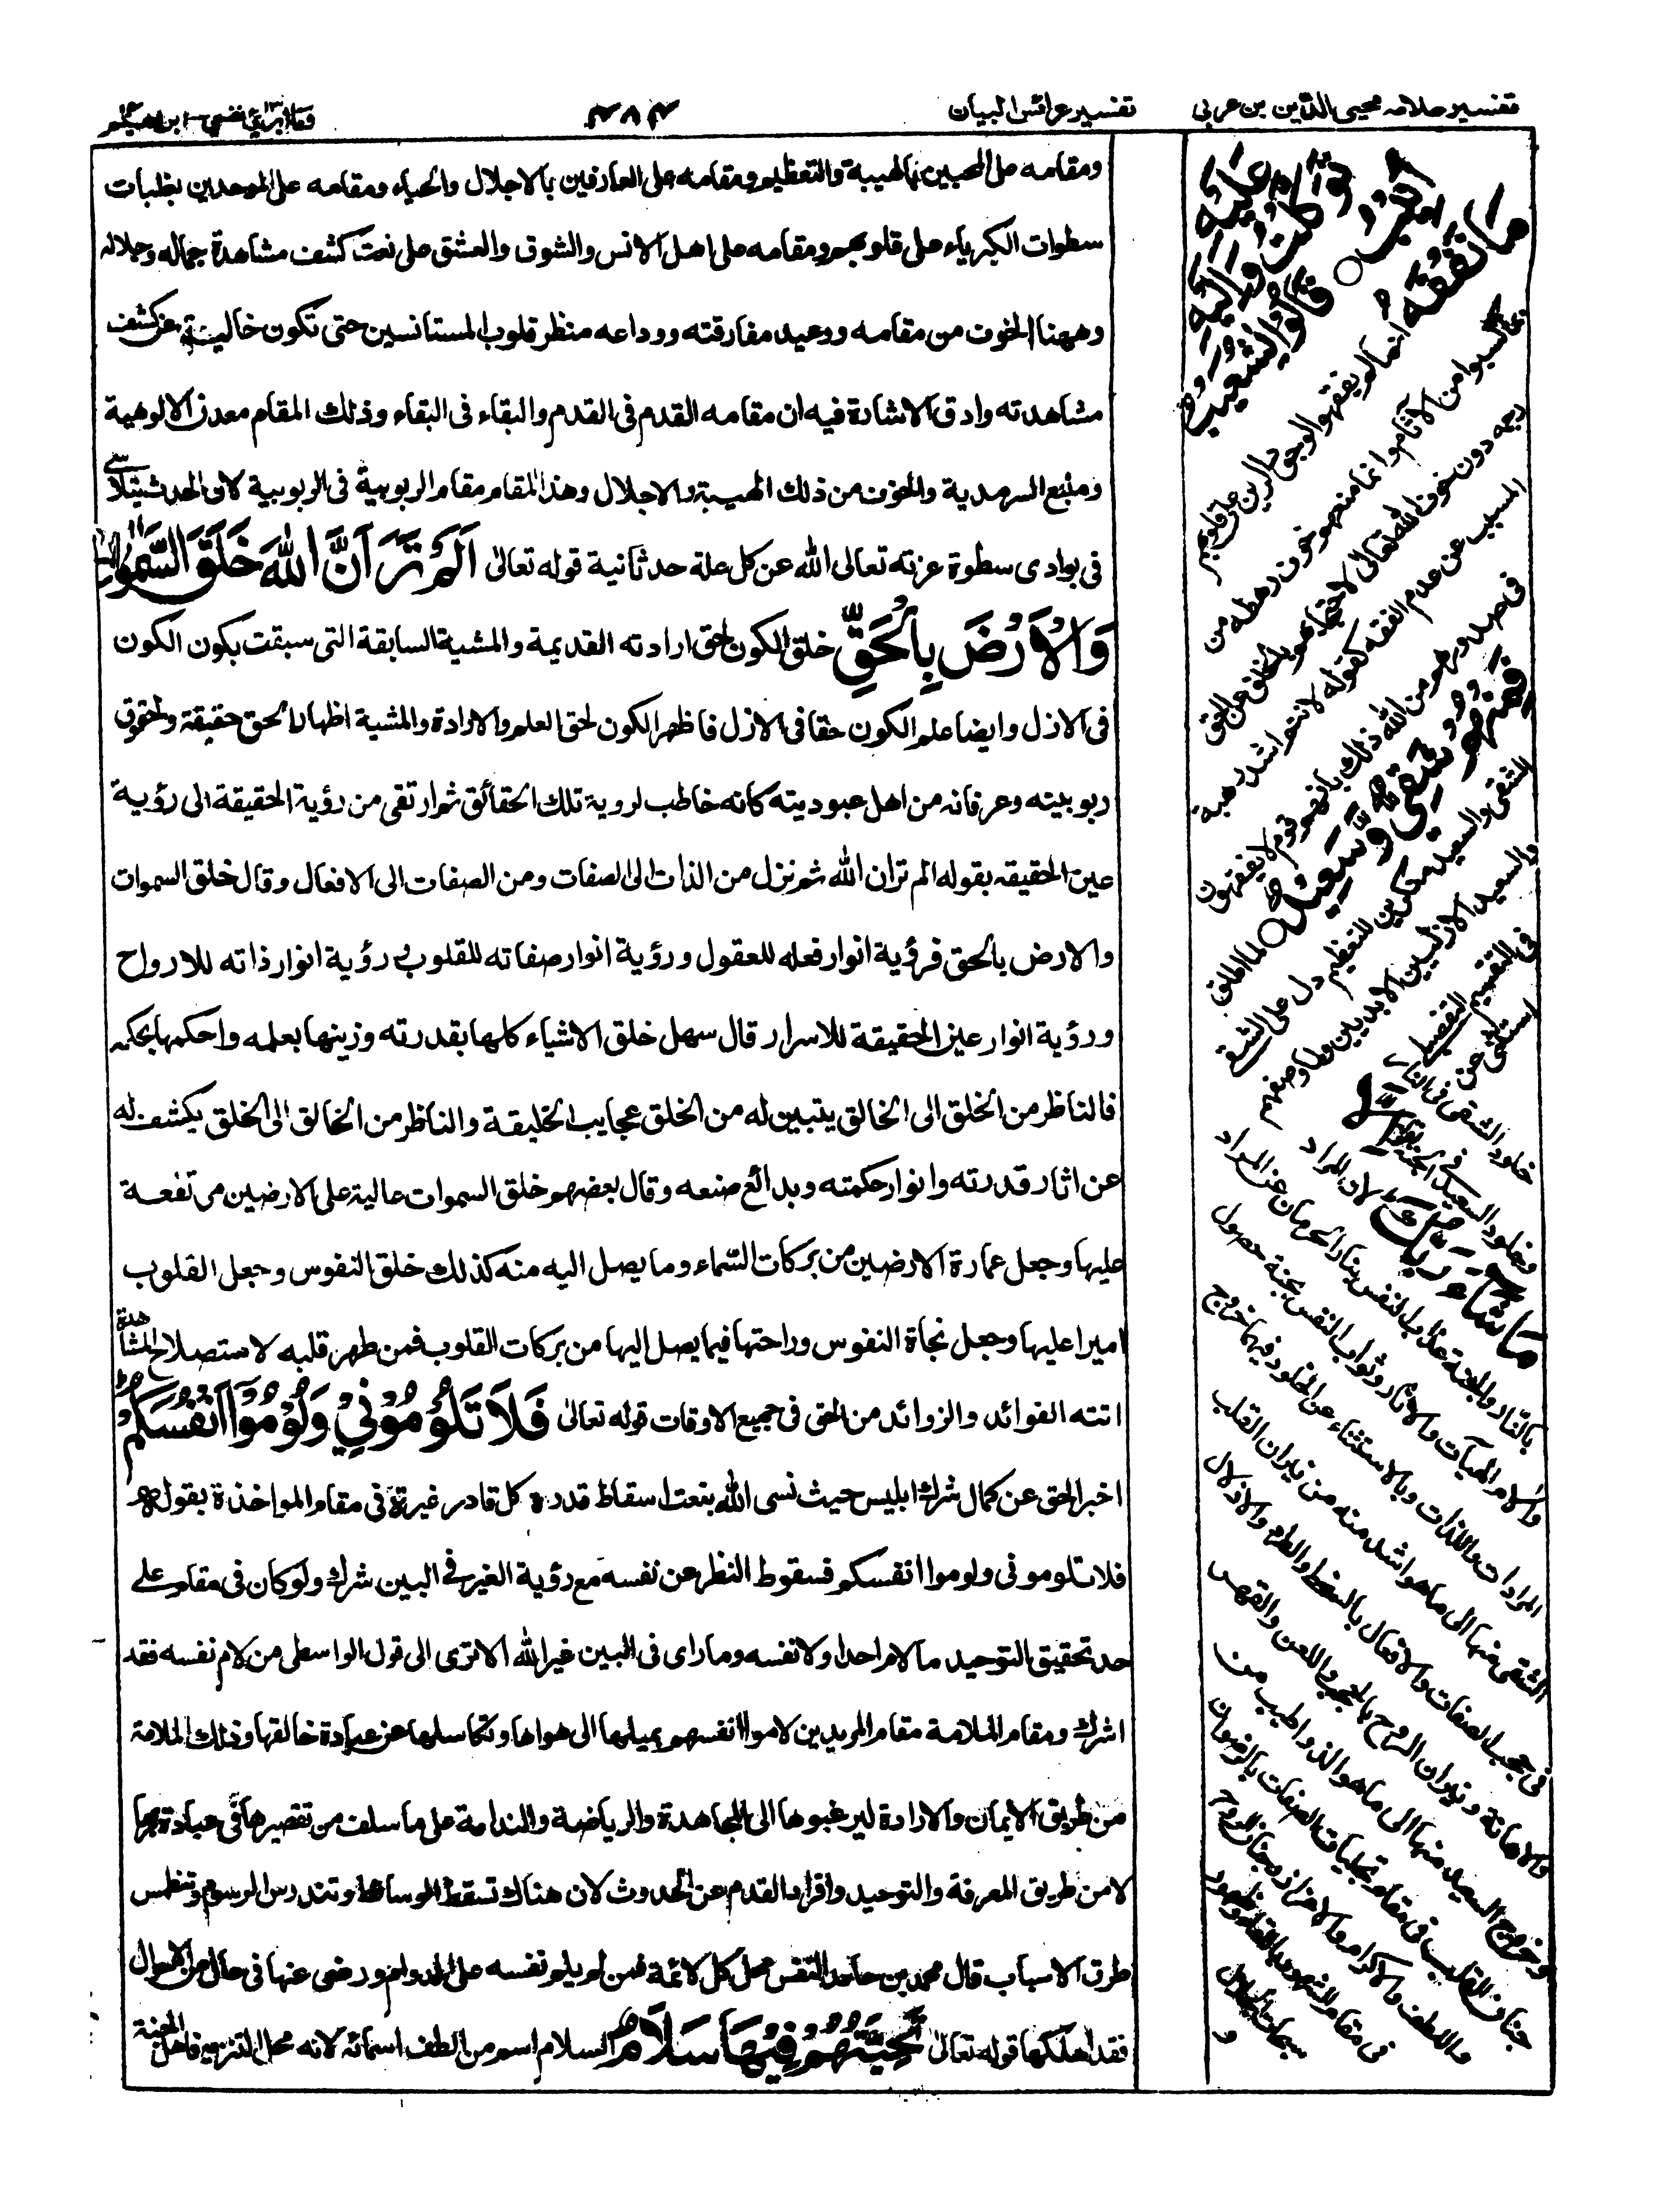 تفسير علامه محيى الدين بن عربى
تفسير عرائس البيان
ومقامه على المحبين بالهيبة والتعظيم ومقامه على العارفين بالاجلال والحياء ومقامه على الموحدين بغلبات
سطوات الكبرياء على قلوبهم ومقامه على اهل الانس والشوق والعشق على نعت كشف مشاهدة جماله وجلاله
وههنا الخوف من مقامه ووعيد مفارقته ووداعه منظر قلوب المستانسين حتى تكون خالية عن كشف
مشاهدته وادق الاشارة فيه ان مقامه القدم فى القدم والبقاء فى البقاء وذلك المقام معدن الالوهية
ومنبع السرمدية والخوف من ذلك الهيبة والاجلال وهذا المقام مقام الربوبية فى الربوبية لان الحدث يتلاشى
فى بوادى سطوة عزته تعالى الله عن كل علة حدثانية قوله تعالى اَلَمْ تَرَ اَنَّ اللهَ خَلَقَ السَّمٰوٰتِ
وَالْاَرْضَ بِالْحَقِّ خلق الكون لحق ارادته القديمة والمشية السابقة التى سبقت بكون الكون
فى الازل وايضا علم الكون حقا فى الازل فاظهر الكون لحق العلم والارادة والمشية اظهار الحق حقيقة ولحقوق
ربوبيته وعرفانه من اهل عبوديته كانه خاطب لروية تلك الحقائق ثم ارتقى من رؤية الحقيقة الى رؤية
عين الحقيقه بقوله الم تر ان الله ثم نزل من الذات الى الصفات ومن الصفات الى الافعال وقال خلق السموات
والارض بالحق فرؤية انوار فعله للعقول ورؤية انوار صفاته للقلوب ورؤية انوار ذاته للارواح
ورؤية انوار عين الحقيقة للاسرار قال سهل خلق الاشياء كلها بقدرته وزينها بعلمه واحكمها بحكمه
فالناظر من الخلق الى الخالق يتبين له من الخلق عجايب الخليقة والناظر من الخالق الى الخلق يكشف له
عن اثار قدرته وانوار حكمته وبدائع صنعه وقال بعضهم خلق السموات عالية على الارضين مرتفعة
عليها وجعل عمارة الارضين من بركات السماء وما يصل اليه منه كذلك خلق النفوس وجعل القلوب
اميرا عليها وجعل نجاة النفوس وراحتها فيما يصل اليها من بركات القلوب فمن طهر قلبه لاستصلاح المشاهدة
اتته الفوائد والزوائد من الحق فى جميع الاوقات قوله تعالى فَلَا تَلُوْمُوْنِيْ وَلُوْمُوْا اَنْفُسَكُمْ
اخبر الحق عن كمال شرك ابليس حيث نسى الله بنعت اسقاط قدرة كل قادر غيره فى مقام المواخذة بقوله
فلا تلومونى ولوموا انفسكم فسقوط النظر عن نفسه مع رؤية الغير فى البين شرك ولو كان فى مقام على
حد تحقيق التوحيد ما لام احدا ولا نفسه وما راى فى البين غير الله الا ترى الى قول الواسطى من لام نفسه فقد
اشرك ومقام الملامة مقام المريدين لاموا انفسهم بميلها الى هواها وتكاسلها عن عبادة خالقها وذلك الملامة
من طريق الايمان والارادة ليرغبوها الى المجاهدة والرياضة والندامة على ما سلف من تقصيرها فى عبادة ربها
لا من طريق المعرفة والتوحيد وافراد القدم عن الحدوث لان هناك تسقط الوسائط وتندرس الرسوم وتنطمس
طرق الاسباب قال محمد بن حامد النفس محل كل لائمة فمن لم يلم نفسه على الدوام ورضى عنها فى حال من الاحوال
فقد اهلكها قوله تعالى تَحِيَّتُهُمْ فِيْهَا سَلَامٌ السلام اسم من الطف اسمائه لانه محل التنزيه فاهل الجنة
تَوَكَّلْتُ وَاِلَيْهِ اُنِيْبُ
قَالُوْا يٰشُعَيْبُ
مَا نَفْقَهُ
انما لم يفقهوا لوجود الرين على قلوبهم
بما كسبوا من الآثام وانما منعهم خوف رهطه من
رجمه دون خوف الله تعالى لاحتجابهم بالخلق عن الحق
المسبب عن عدم الفقه كقوله لانتم اشد رهبة
فى صدورهم من الله ذلك بانهم قوم لا يفقهون
فَمِنْهُمْ شَقِيٌّ وَّسَعِيْدٌ لما اطلق
الشقى والسعيد منكرين للتعظيم دل على الشقى
والسعيد الازليين الابديين ولما وصفهم
فى التقسيم التفصيلى
استثنى عن
خلود الشقى فى النار
وخلود السعيد فى الجنة بقوله اِلَّا
مَا شَآءَ رَبُّكَ لان المراد
بالنار والجنة عذاب النفس بنار الحرمان عن المراد
والالام الهيآت والآثار وثواب النفس بجنة حصول
المرادات واللذات وبالاستثناء عن الخلود فيهما خروج
الشقى منها الى ما هو اشد منه من نيران القلب
فى حجب الصفات والافعال بالسخط والطرد والاذلال
والاهانة ونيران الروح بالحجب واللعن والقهر
وخروج السعيد منها الى ما هو الذ واطيب من
جنان القلب فى مقام تجليات الصفات بالرضوان
واللطف والاكرام والاعزاز وجنان الروح
فى مقام الشهود باللقاء وظهور
سبحات الجلال
و